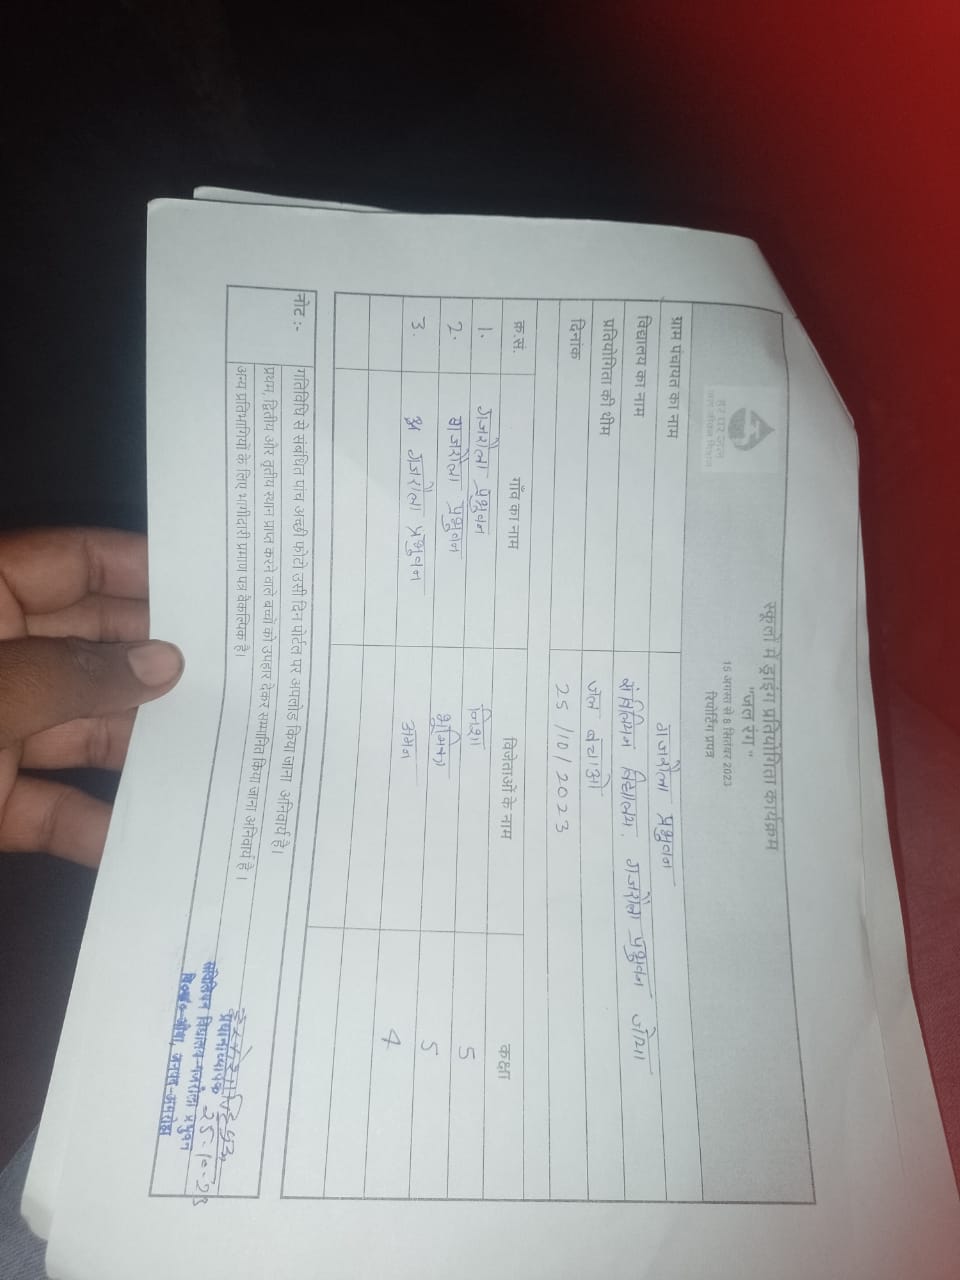 स्कूलों में ड्राइंग प्रतियोगिता कार्यक्रम
"जल रंग"
15 अगस्त से 8 सितंबर 2023
रिपोर्टिंग प्रपत्र
हर घर जल
जल जीवन मिशन
ग्राम पंचायत का नाम गजरौला प्रभुवन
विद्यालय का नाम संविलियन विद्यालय गजरौला प्रभुवन जोया
प्रतियोगिता की थीम जल बचाओ
दिनांक 25/10/2023
क्र.सं. गाँव का नाम विजेताओं के नाम कक्षा
1. गजरौला प्रभुवन निशा 5
2. गजरौला प्रभुवन भूमिका 5
3. गजरौला प्रभुवन अमन 4
नोट :- गतिविधि से संबंधित पांच अच्छी फोटो उसी दिन पोर्टल पर अपलोड किया जाना अनिवार्य है।
प्रथम, द्वितीय और तृतीय स्थान प्राप्त करने वाले बच्चों को उपहार देकर सम्मानित किया जाना अनिवार्य है।
अन्य प्रतिभागियों के लिए भागीदारी प्रमाण पत्र वैकल्पिक है।
प्रधानाध्यापक 25.10.23
संविलियन विद्यालय-गजरौला प्रभुवन
जनपद-अमरोहा